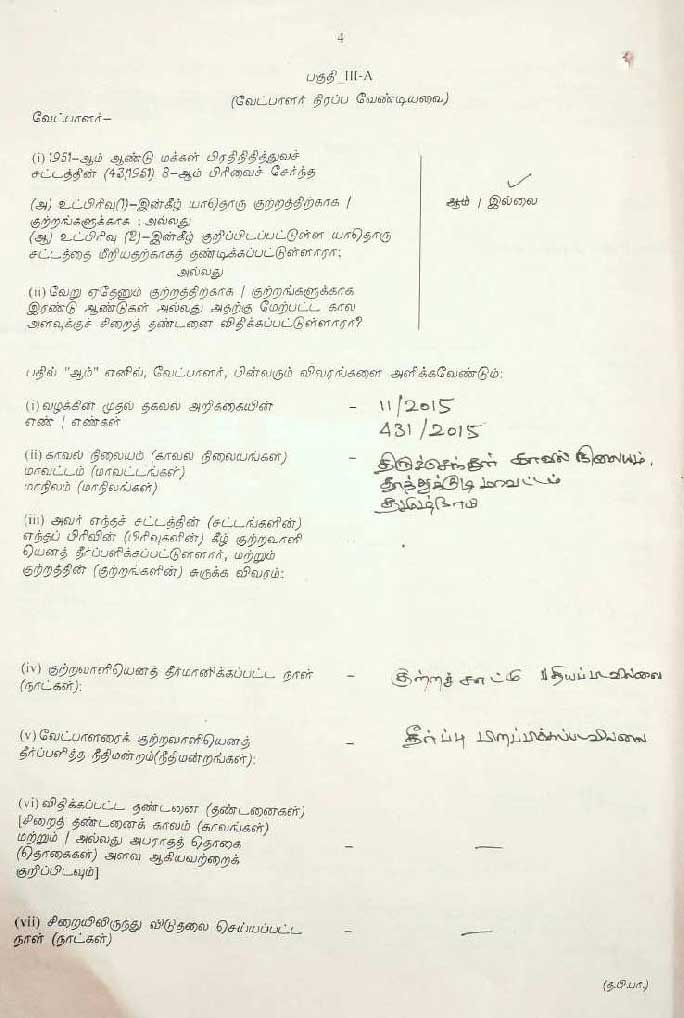 4
பகுதி III-A
(வேட்பாளர் நிரப்ப வேண்டியவை)
வேட்பாளர்—
(i) 1951-ஆம் ஆண்டு மக்கள் பிரதிநிதித்துவச்
சட்டத்தின் (43/1951) 8-ஆம் பிரிவைச் சேர்ந்த
(அ) உட்பிரிவு(1)-இன்கீழ் யாதொரு குற்றத்திற்காக /
குற்றங்களுக்காக : அல்லது
ஆம் / இல்லை
(ஆ) உட்பிரிவு (2)-இன்கீழ் குறிப்பிடப்பட்டுள்ள யாதொரு
சட்டத்தை மீறியதற்காகத் தண்டிக்கப்பட்டுள்ளாரா;
அல்லது
(ii) வேறு ஏதேனும் குற்றத்திற்காக / குற்றங்களுக்காக
இரண்டு ஆண்டுகள் அல்லது அதற்கு மேற்பட்ட கால
அளவுக்குச் சிறைத் தண்டனை விதிக்கப்பட்டுள்ளாரா?
பதில் "ஆம்" எனில், வேட்பாளர், பின்வரும் விவரங்களை அளிக்கவேண்டும்:
(i) வழக்கின் முதல் தகவல் அறிக்கையின் – 11/2015
எண் / எண்கள் 431/2015
(ii) காவல் நிலையம் (காவல் நிலையங்கள்) – திருச்செந்தூர் காவல் நிலையம்.
மாவட்டம் (மாவட்டங்கள்) தூத்துக்குடி மாவட்டம்
மாநிலம் (மாநிலங்கள்) தமிழ்நாடு
(iii) அவர் எந்தச் சட்டத்தின் (சட்டங்களின்)
எந்தப் பிரிவின் (பிரிவுகளின்) கீழ் குற்றவாளி
யெனத் தீர்ப்பளிக்கப்பட்டுள்ளார், மற்றும்
குற்றத்தின் (குற்றங்களின்) சுருக்க விவரம்:
(iv) குற்றவாளியெனத் தீர்மானிக்கப்பட்ட நாள் – குற்றச்சாட்டு பதியப்படவில்லை
(நாட்கள்):
(v) வேட்பாளரைக் குற்றவாளியெனத் – தீர்ப்பு
தீர்ப்பளித்த நீதிமன்றம்(நீதிமன்றங்கள்):
(vi) விதிக்கப்பட்ட தண்டனை (தண்டனைகள்)
[சிறைத் தண்டனைக் காலம் (காலங்கள்)
மற்றும் / அல்லது அபராதத் தொகை
(தொகைகள்) அளவு ஆகியவற்றைக் – —
குறிப்பிடவும்]
(vii) சிறையிலிருந்து விடுதலை செய்யப்பட்ட – —
நாள் (நாட்கள்)
(த.பி.பா.)